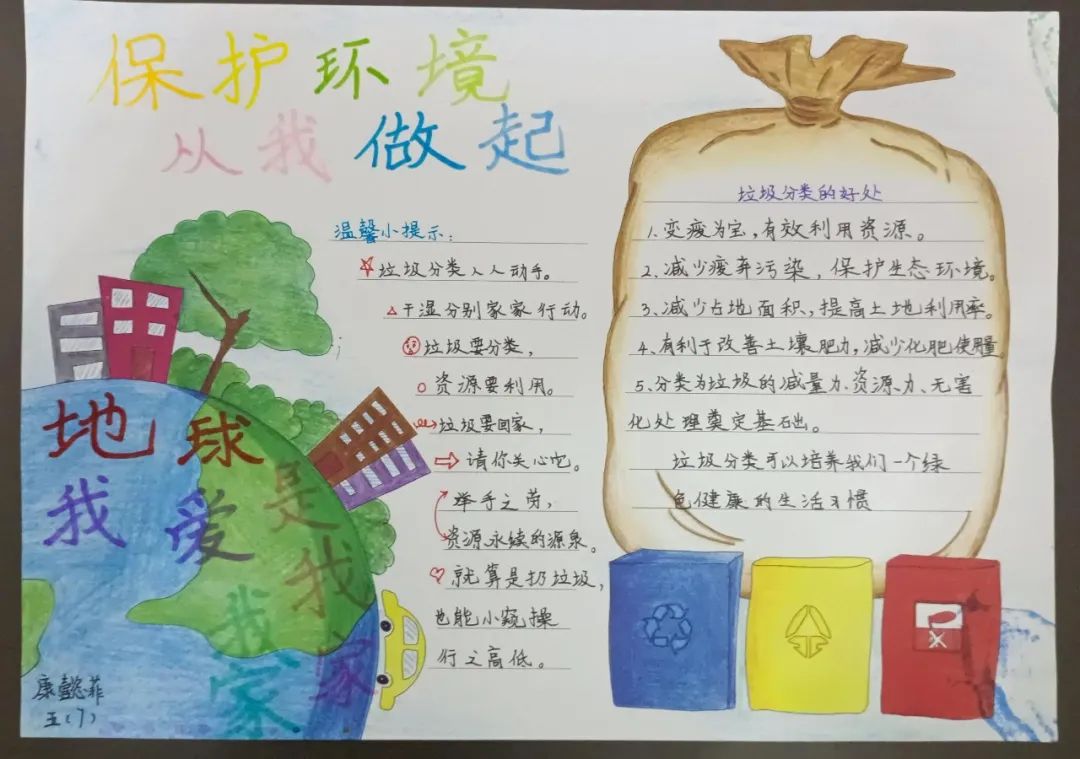 保护环境
从我做起
温馨小提示:
垃圾分类人人动手。
干湿分别家家行动。
垃圾要分类,
资源要利用。
垃圾要回家,
请你关心它。
举手之劳,
资源永续的源泉。
就算是扔垃圾,
也能小窥操
行之高低。
垃圾分类的好处
1.变废为宝,有效利用资源。
2.减少废弃污染,保护生态环境。
3.减少占地面积,提高土地利用率。
4.有利于改善土壤肥力,减少化肥使用量。
5.分类为垃圾的减量力、资源力、无害
化处理奠定基础。
垃圾分类可以培养我们一个绿
色健康的生活习惯
地球是我家
我爱我家
康懿菲
五(7)